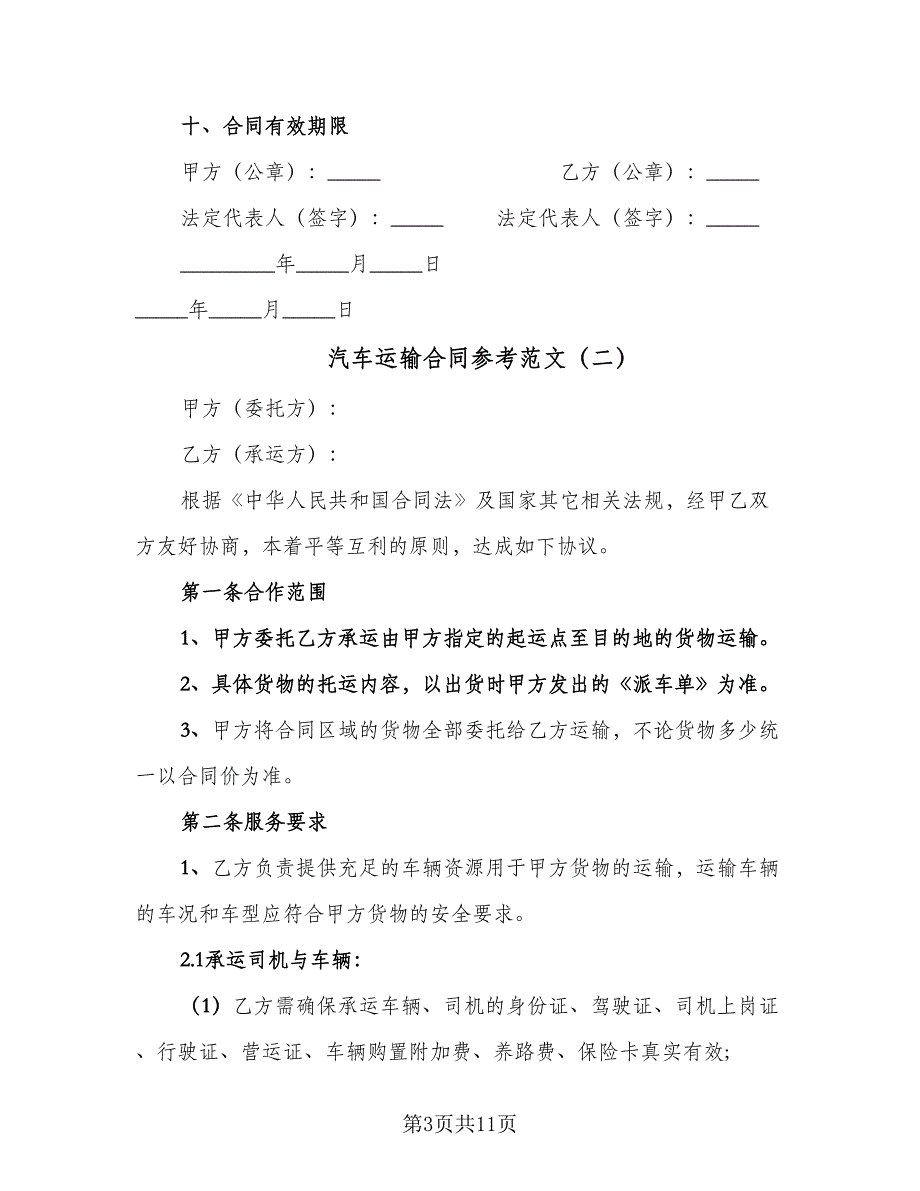 十、合同有效期限
甲方（公章）：_____ 乙方（公章）：_____
法定代表人（签字）：_____ 法定代表人（签字）：_____
_________年_____月_____日
_____年_____月_____日
汽车运输合同参考范文（二）
甲方（委托方）：
乙方（承运方）：
根据《中华人民共和国合同法》及国家其它相关法规，经甲乙双
方友好协商，本着平等互利的原则，达成如下协议。
第一条合作范围
1、甲方委托乙方承运由甲方指定的起运点至目的地的货物运输。
2、具体货物的托运内容，以出货时甲方发出的《派车单》为准。
3、甲方将合同区域的货物全部委托给乙方运输，不论货物多少统
一以合同价为准。
第二条服务要求
1、乙方负责提供充足的车辆资源用于甲方货物的运输，运输车辆
的车况和车型应符合甲方货物的安全要求。
2.1承运司机与车辆：
（1）乙方需确保承运车辆、司机的身份证、驾驶证、司机上岗证
、行驶证、营运证、车辆购置附加费、养路费、保险卡真实有效;
第3页共11页